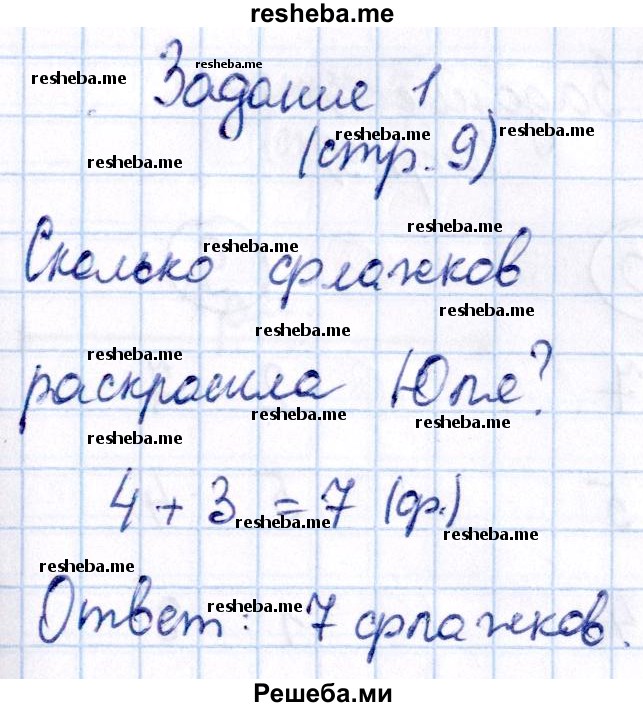 resheba.me
resheba.me
resheba.me
Задание 1
resheba.me
resheba.me
resheba.me
(стр. 9)
resheba.me
resheba.me
Сколько флажков
resheba.me
resheba.me
resheba.me
раскрасила Юля?
resheba.me
resheba.me
resheba.me
4 + 3 = 7 (ф.)
resheba.me
resheba.me
resheba.me
resheba.me
Ответ: 7 флажков.
Решеба.ми